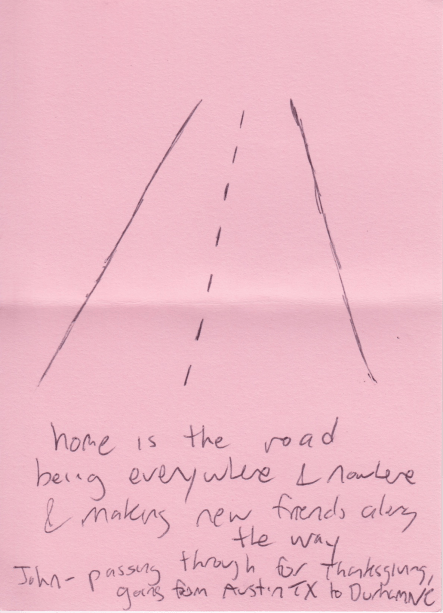 home is the road
being everywhere & nowhere
& making new friends along
the way
John- passing through for Thanksgiving,
going from Austin TX to Durham NC